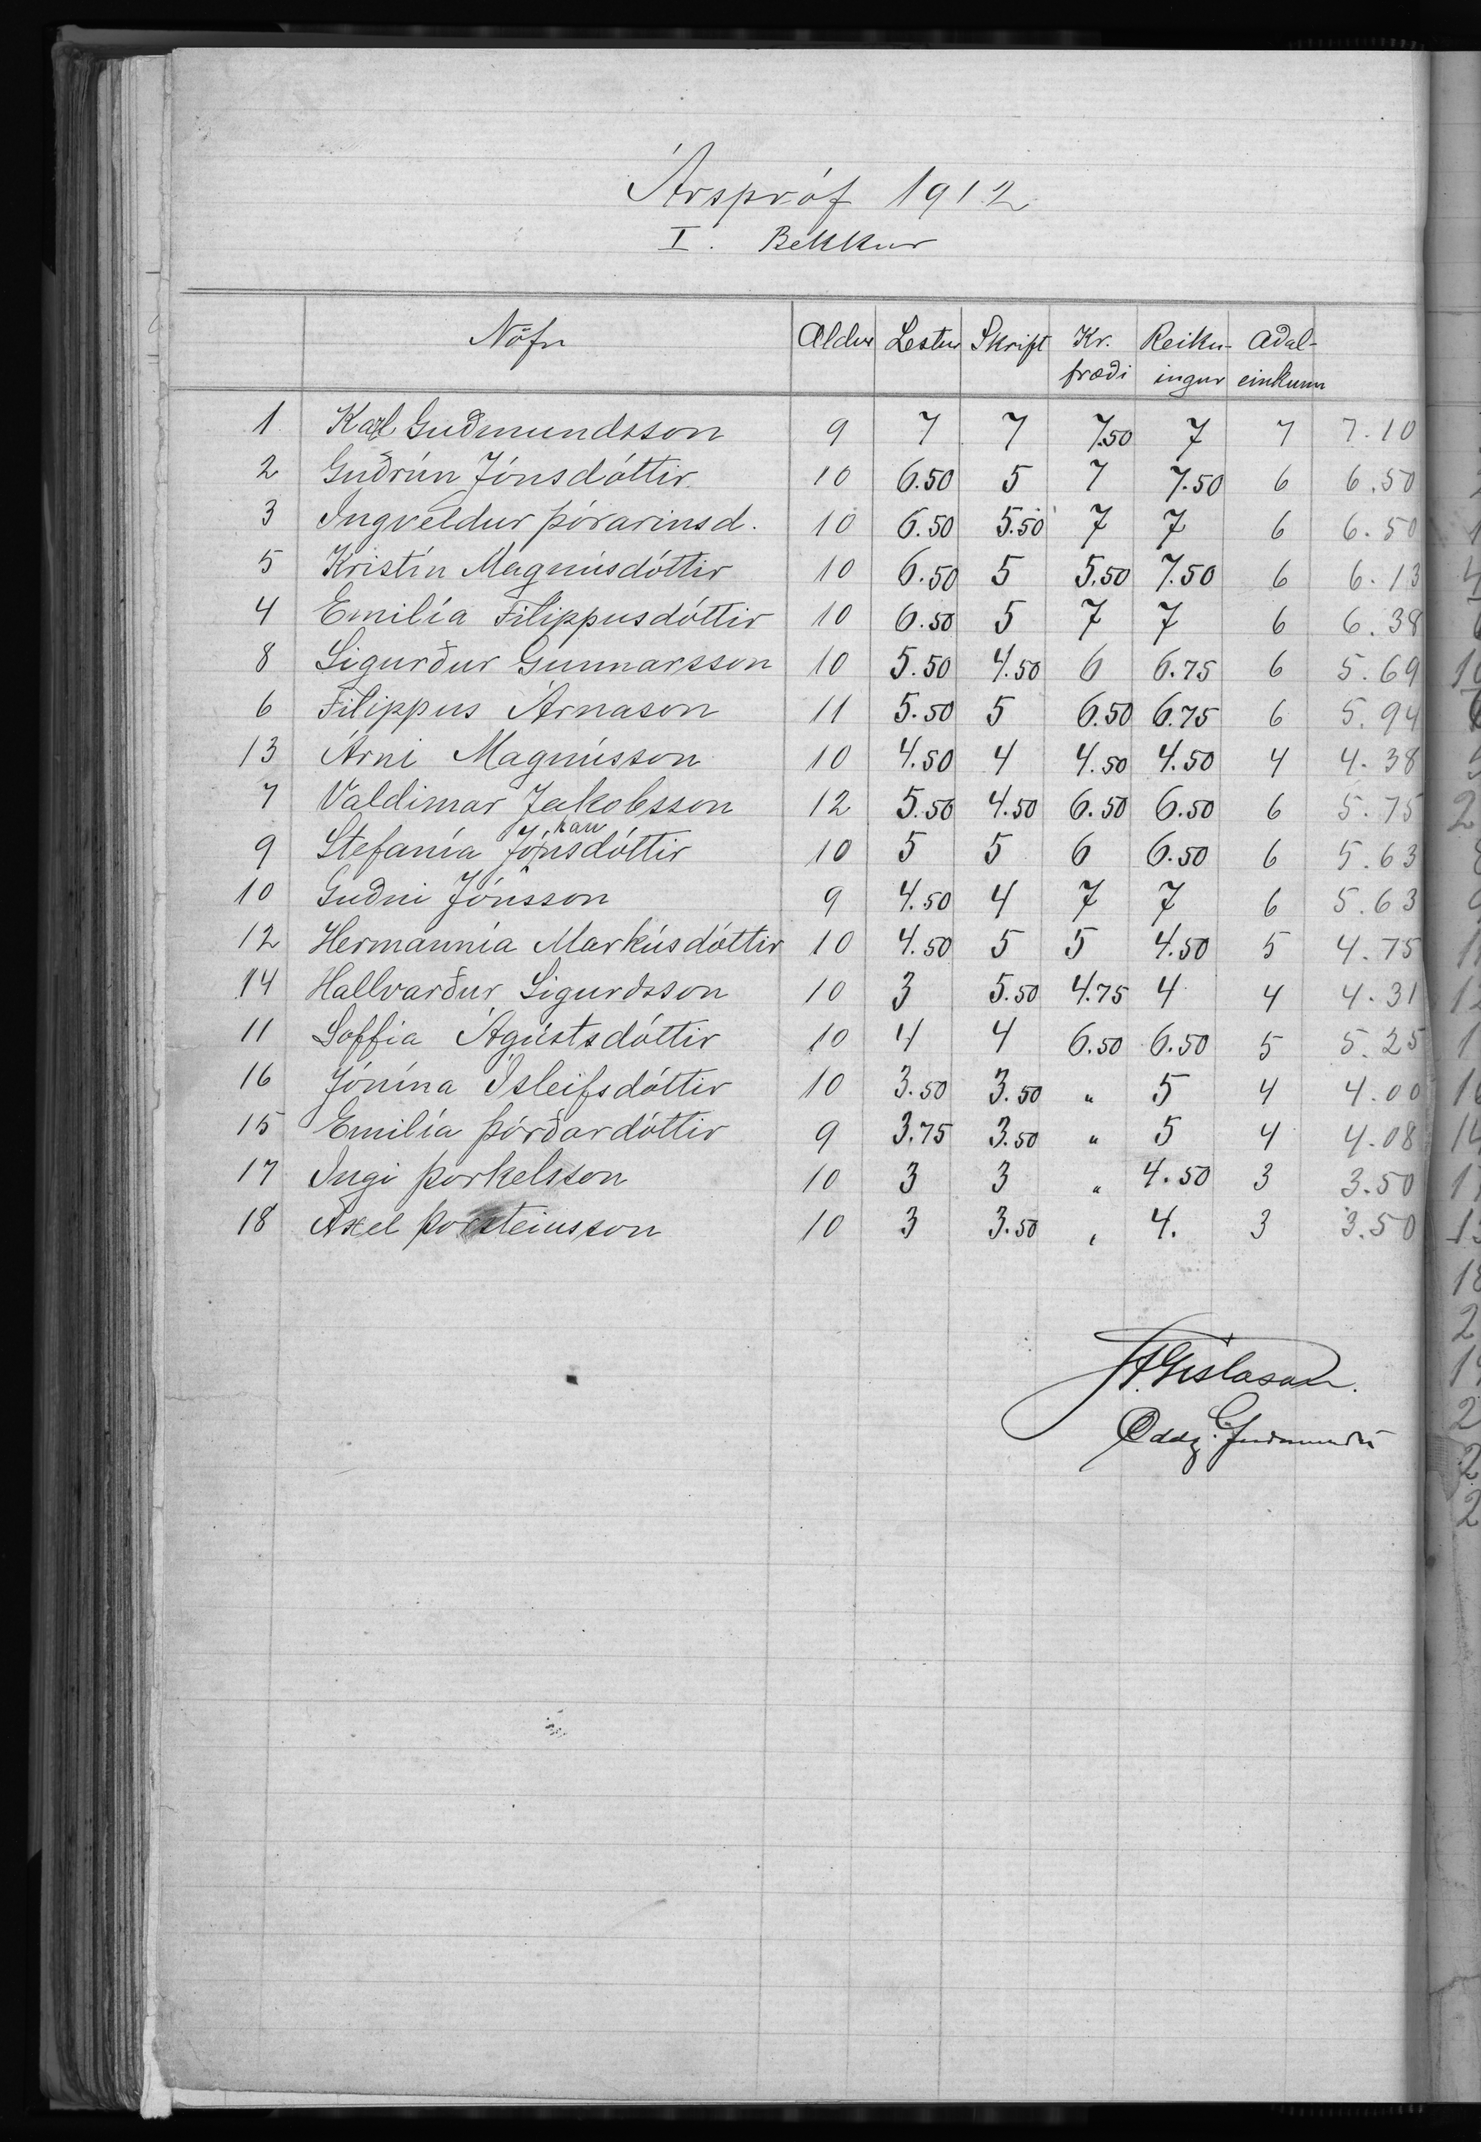 Árspróf 1912
I. Bekkur
Nöfn Aldur Lestur Skrift Kr. fræði Reikningur Aðaleinkunn
1 Karl Guðmundsson 9 7 7 7.50 7 7 7.10
2 Guðrún Jónsdóttir 10 6.50 5 7 7.50 6 6.50
3 Ingveldur Þórarinsd. 10 6.50 5.50 7 7 6 6.50
5 Kristín Magnúsdóttir 10 6.50 5 5.50 7.50 6 6.13
4 Emilía Filippusdóttir 10 6.50 5 7 7 6 6.38
8 Sigurður Gunnarsson 10 5.50 4.50 6 6.75 6 5.69
6 Filippus Árnason 11 5.50 5 6.50 6.75 6 5.94
13 Árni Magnússon 10 4.50 4 4.50 4.50 4 4.38
7 Valdimar Jakobsson 12 5.50 4.50 6.50 6.50 6 5.75
9 Stefanía Jóhannsdóttir 10 5 5 6 6.50 6 5.63
10 Guðni Jónsson 9 4.50 4 7 7 6 5.63
12 Hermannía Markúsdóttir 10 4.50 5 5 4.50 5 4.75
14 Hallvarður Sigurðsson 10 3 5.50 4.75 4 4 4.31
11 Soffia Ágústsdóttir 10 4 4 6.50 6.50 5 5.25
16 Jónína Ísleifsdóttir 10 3.50 3.50 " 5 4 4.00
15 Emilía Þórðardóttir 9 3.75 3.50 " 5 4 4.08
17 Ingi Þorkelsson 10 3 3 " 4.50 3 3.50
18 Axel Þorsteinsson 10 3 3.50 " 4. 3 3.50
Gíslason.
Oddg. Guðmunds